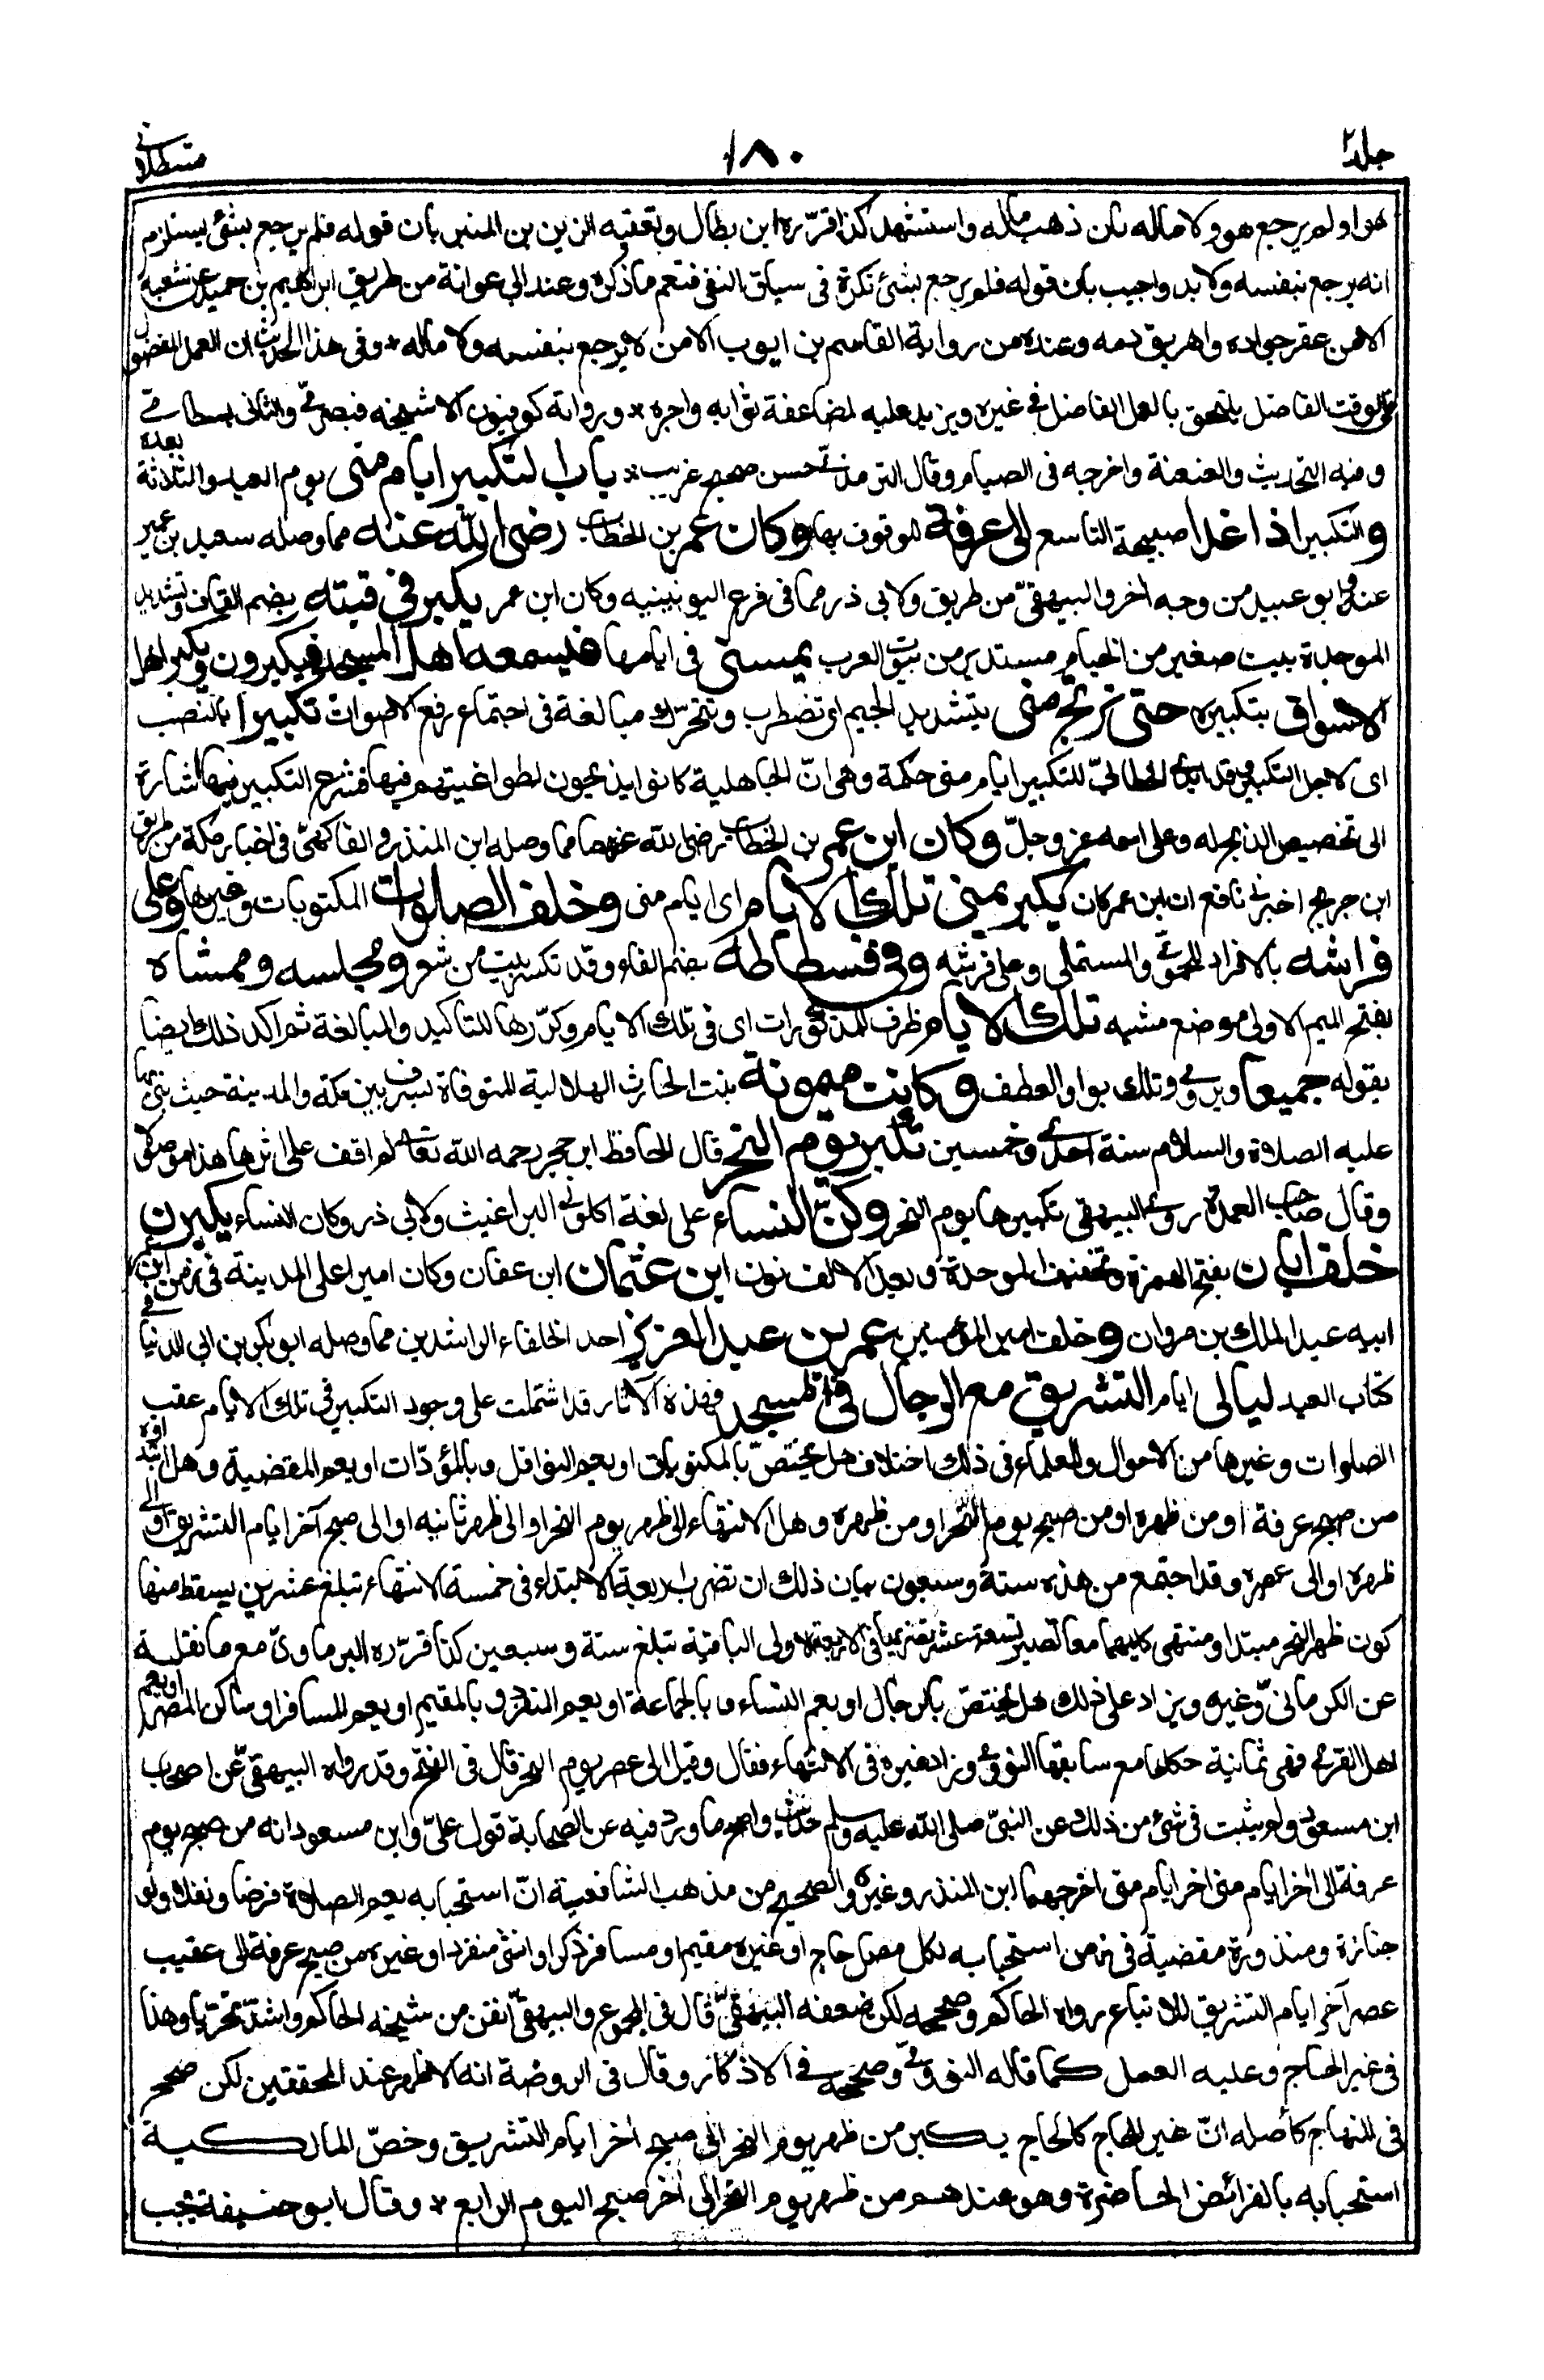 جلد ٢
١٨٠
قسطلاني
هو او لم يرجع هو ولا ماله بان ذهب ماله واستشهد كذا قرّره ابن بطال وتعقبه الزين بن المنير بان قوله فلم يرجع بشئ يستلزم
انه يرجع بنفسه ولا بد واجيب بان قوله فلم يرجع بشئ نكرة في سياق النفي فتعم ما ذكره وعند ابي عوانة من طريق ابراهيم بن حميد عن شعبة
الا من عقر جواده واهريق دمه وعنده من رواية القاسم بن ايوب الا من لا يرجع بنفسه ولا ماله * وفي هذا الحديث ان العمل المفضول
في الوقت الفاضل يلتحق بالعمل الفاضل في غيره ويزيد عليه لمضاعفة ثوابه واجره * ورواته كوفيون الا شيخه فبصري والثاني بسطامي
وفيه التحديث والعنعنة واخرجه في الصيام وقال الترمذي حسن صحيح غريب * باب التكبير ايام منى يوم العيد والثلاثة بعده
والتكبير اذا غدا صبيحة التاسع الى عرفة للوقوف بها وكان عمر بن الخطاب رضي الله عنه مما وصله سعيد بن عمير
عنه وابو عبيد من وجه اخر والبيهقيّ من طريق ولابي ذر مما في فرع اليونينيه وكان ابن عمر يكبر في قبته بضم القاف وتشديد
الموحدة بيت صغير من الخيام مستدير من بيوت العرب بمنى في ايامها فيسمعه اهل المسجد فيكبرون ويكبر اهل
الاسواق بتكبيره حتى ترتج منى بتشديد الجيم اي تضطرب وتتحرّك مبالغة في اجتماع رفع الاصوات تكبيرا بالنصب
اي لاجل التكبير وقد ابدى الخطابيّ للتكبير ايام منى حكمة وهي انّ الجاهلية كانوا يذبحون لطواغيتهم فيها فشرع التكبير فيها اشارة
الى تخصيص الذبح له وعلى اسمه عز وجلّ وكان ابن عمر بن الخطاب رضي الله عنهما مما وصله ابن المنذر والفاكهي في اخبار مكة من طريق
ابن جريج اخبرني نافع ان ابن عمر كان يكبر بمنى تلك الايام اي ايام منى وخلف الصلوات المكتوبات وغيرها وعلى
فراشه بالافراد للحموي والمستملي وعلى فرشه وفي فسطاطه بضم الفاء وقد تكسر بيت من شعر ومجلسه وممشاه
بفتح الميم الاولى موضع مشيه تلك الايام ظرف للمذكورات اي في تلك الايام وكرّرها للتاكيد والمبالغة ثم اكد ذلك ايضا
بقوله جميعا ويروى وتلك بواو العطف وكانت ميمونة بنت الحارث الهلالية المتوفاة بسرف بين مكة والمدينة حيث بنى بها
عليه الصلاة والسلام سنة احدى وخمسين تكبر يوم النحر قال الحافظ ابن حجر رحمه الله تعالى لم اقف على اثرها هذا موصولا
وقال صاحب العمدة روى البيهقي تكبيرها يوم النحر وكنّ النساء على لغة اكلوني البراغيث ولابي ذر وكان النساء يكبرن
خلف ابان بفتح الهمزة وتخفيف الموحدة وبعد الالف نون ابن عثمان ابن عفان وكان اميرا على المدينة في زمن ابن عم
ابيه عبد الملك بن مروان وخلف امير المؤمنين عمر بن عبد العزيز احد الخلفاء الراشدين مما وصله ابو بكر بن ابي الدنيا في
كتاب العيد ليالي ايام التشريق مع الرجال في المسجد فهذه الآثار قد اشتملت على وجود التكبير في تلك الايام عقب
الصلوات وغيرها من الاحوال وللعلماء في ذلك اختلاف هل يختصّ بالمكتوبات او يعم النوافل وبالمؤدّات او يعم المقضية وهل ابتداؤه
من صبح عرفة او من ظهره او من صبح يوم النحر او من ظهره وهل الانتهاء الى ظهر يوم النحر او الى ظهر ثانيه او الى صبح آخر ايام التشريق او الى
ظهره او الى عصره وقد اجتمع من هذه ستة وسبعون بيان ذلك ان تضرب اربعة الابتداء في خمسة الانتهاء تبلغ عشرين يسقط منها
كون ظهر النحر مبتدا ومنتهى كليهما معا تصير تسعة عشر تضربها في الاربعة الاولى الباقية تبلغ ستة وسبعين كذا قرّره البرماويّ مع ما نقله
عن الكرمانيّ وغيره ويزاد على ذلك هل يختصّ بالرجال او يعم النساء وبالجماعة او يعم المنفرد وبالمقيم او يعم المسافر وساكن المصر او يعم
اهل القرى فهي ثمانية حكاها مع سابقها النووي وزاد غيره في الانتهاء فقال وقيل الى عصر يوم النحر قال في الفتح وقد رواه البيهقيّ عن اصحاب
ابن مسعود ولم يثبت في شئ من ذلك عن النبيّ صلى الله عليه وسلم حديث واصح ما ورد فيه عن الصحابة قول عليّ وابن مسعود انه من صبح يوم
عرفة الى اخر ايام منى اخر ايام منى اخرجهما ابن المنذر وغيره والصحيح من مذهب الشافعية انّ استحبابه يعم الصلاة فرضا ونفلا ولو
جنازة ومنذورة مقضية في زمن استحبابه لكل مصل حاج او غيره مقيم او مسافر ذكر او انثى منفرد او غيره من صبح عرفة الى عقيب
عصر آخر ايام التشريق للاتباع رواه الحاكم وصححه لكن ضعفه البيهقيّ قال في المجموع والبيهقيّ اتقن من شيخه الحاكم واشدّ تحريا وهذا
في غير الحاج وعليه العمل كما قاله النووي وصححه في الاذكار وقال في الروضة انه الاظهر عند المحققين لكن صحح
في المنهاج كأصله انّ غير الحاج كالحاج يكبر من ظهر يوم النحر الى صبح اخر ايام التشريق وخصّ المالكية
استحبابه بالفرائض الحاضرة وهو عندهم من ظهر يوم النحر الى اخر صبح اليوم الرابع * وقال ابو حنيفة يجب